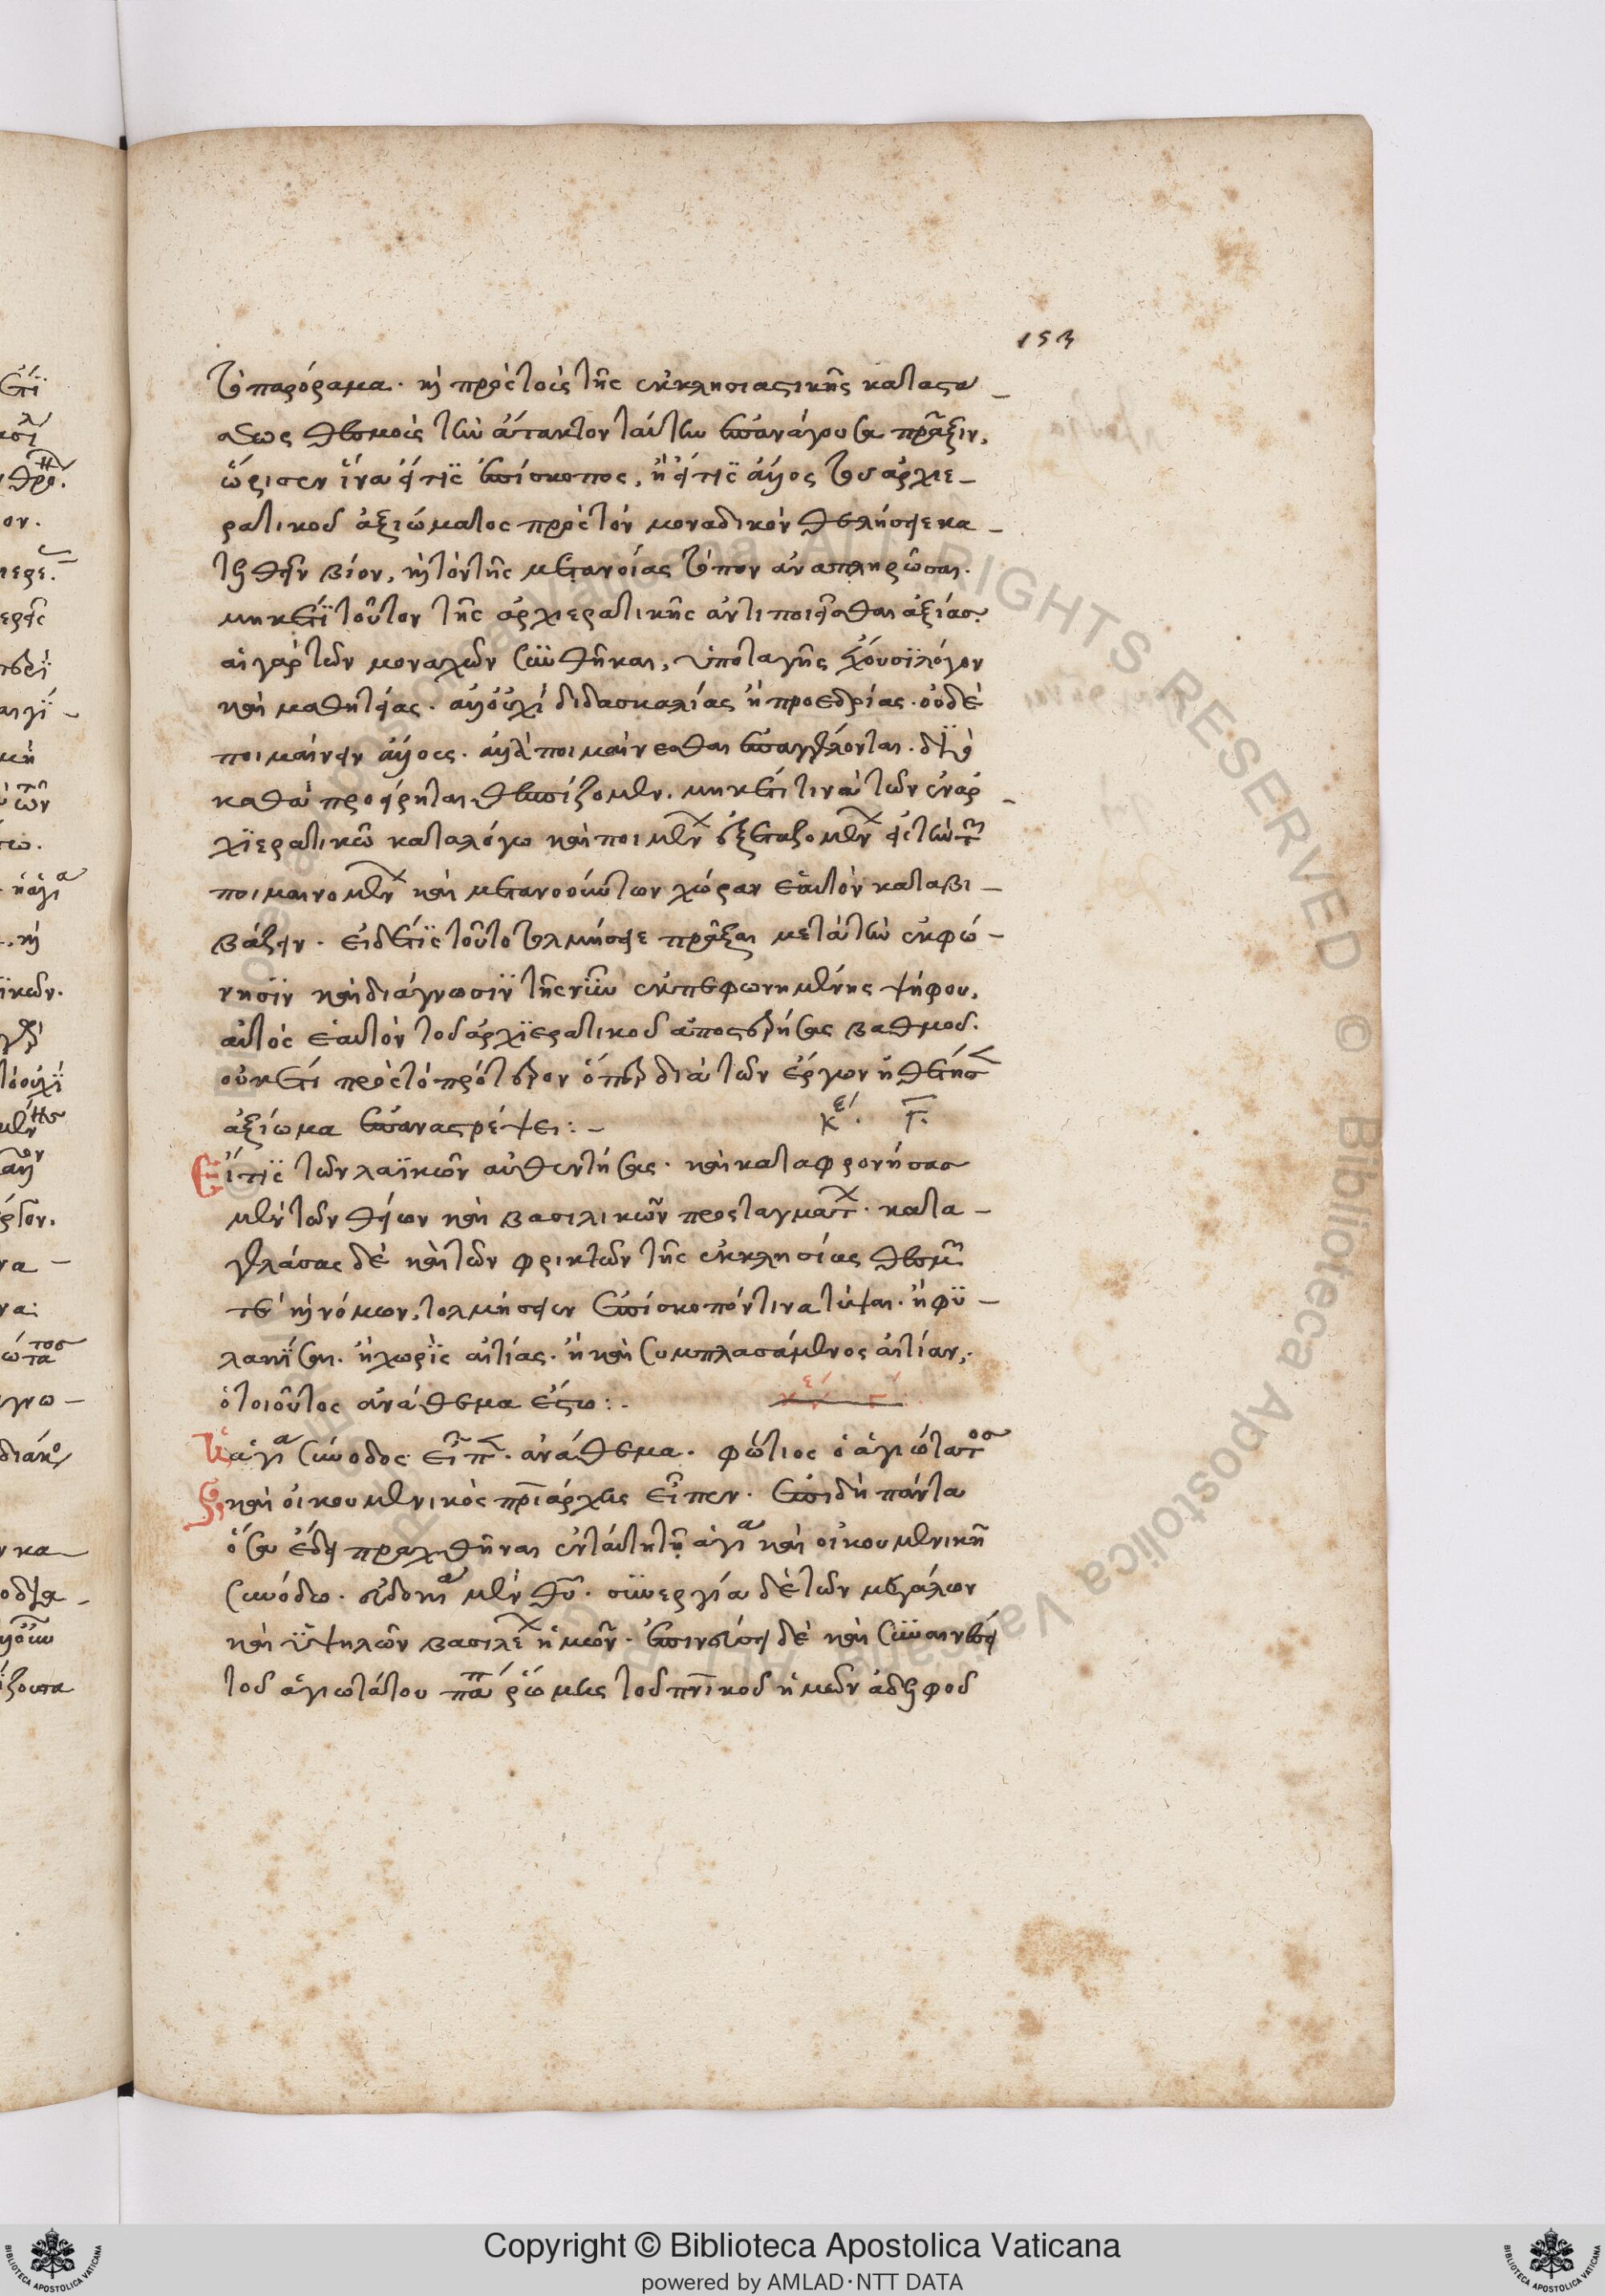 153
τὸ παρόραμα· καὶ πρὸς τοὺς τῆς ἐκκλησιαστικῆς καταστά-
σεως θεσμοὺς τὴν ἄτακτον ταύτην ἐπανάγουσα πρᾶξιν,
ὥρισεν ἵνα εἴ τις ἐπίσκοπος, ἢ εἴ τις ἄλλος τοῦ ἀρχιε-
ρατικοῦ ἀξιώματος πρὸς τὸν μοναδικὸν θελήσειε κα-
τελθεῖν βίον, καὶ τὸν τῆς μετανοίας τόπον ἀναπληρῶσαι.
μηκέτι τοῦτον τῆς ἀρχιερατικῆς ἀντιποιεῖσθαι ἀξίας.
αἱ γὰρ τῶν μοναχῶν συνθῆκαι, ὑποταγῆς ἔχουσι λόγον
καὶ μαθητείας. ἀλλ' οὐχὶ διδασκαλίας ἢ προεδρίας. οὐδὲ
ποιμαίνειν ἄλλους. ἀλλὰ ποιμαίνεσθαι ἐπαγγέλλονται. διὸ
καθὰ προείρηται θεσπίζομεν. μηκέτι τινὰ τῶν ἐν ἀρ-
χιερατικῶ καταλόγω καὶ ποιμένων ἐξεταζομένων εἰς τὴν τῶν
ποιμαινομένων καὶ μετανοούντων χώραν ἑαυτὸν καταβι-
βάζειν. εἰ δέ τις τοῦτο τολμήσειε πρᾶξαι μετὰ τὴν ἐκφώ-
νησιν καὶ διάγνωσιν τῆς νῦν ἐκπεφωνημένης ψήφου,
αὐτὸς ἑαυτὸν τοῦ ἀρχιερατικοῦ ἀποστερήσας βαθμοῦ.
οὐκέτι πρὸς τὸ πρότερον ὅπερ διὰ τῶν ἔργων ἠθέτησεν
ἀξίωμα ἐπαναστρέψει:- κε΄. Γ.
Εἴ τις τῶν λαϊκῶν αὐθεντήσας. καὶ καταφρονήσας
μὲν τῶν θείων καὶ βασιλικῶν προσταγμάτων. κατα-
γελάσας δὲ καὶ τῶν φρικτῶν τῆς ἐκκλησίας θεσμῶν
τε καὶ νόμων, τολμήσειεν ἐπίσκοπόν τινα τύψαι. ἢ φυ-
λακίσαι. ἢ χωρὶς αἰτίας. ἢ καὶ συμπλασάμενος αἰτίαν,
ὁ τοιοῦτος ἀνάθεμα ἔστω:. κε΄ Γ΄.
Ἡ ἁγία σύνοδος εἶπεν. ἀνάθεμα. φώτιος ὁ ἁγιώτατος
καὶ οἰκουμενικὸς πριάρχης εἶπεν. ἐπειδὴ πάντα
ὅσα ἔδει πραχθῆναι ἐν ταύτῃ τῇ ἁγία καὶ οἰκουμενικῆ
συνόδω. εὐδοκία μὲν θυ. συνεργία δὲ τῶν μεγάλων
καὶ ὑψηλῶν βασιλέων ἡμῶν. ἐπινεύσει δὲ καὶ συναινέσει
τοῦ ἁγιωτάτου πάπα ῥώμης τοῦ πνικοῦ ἡμῶν ἀδελφοῦ
Copyright © Biblioteca Apostolica Vaticana
powered by AMLAD·NTT DATA